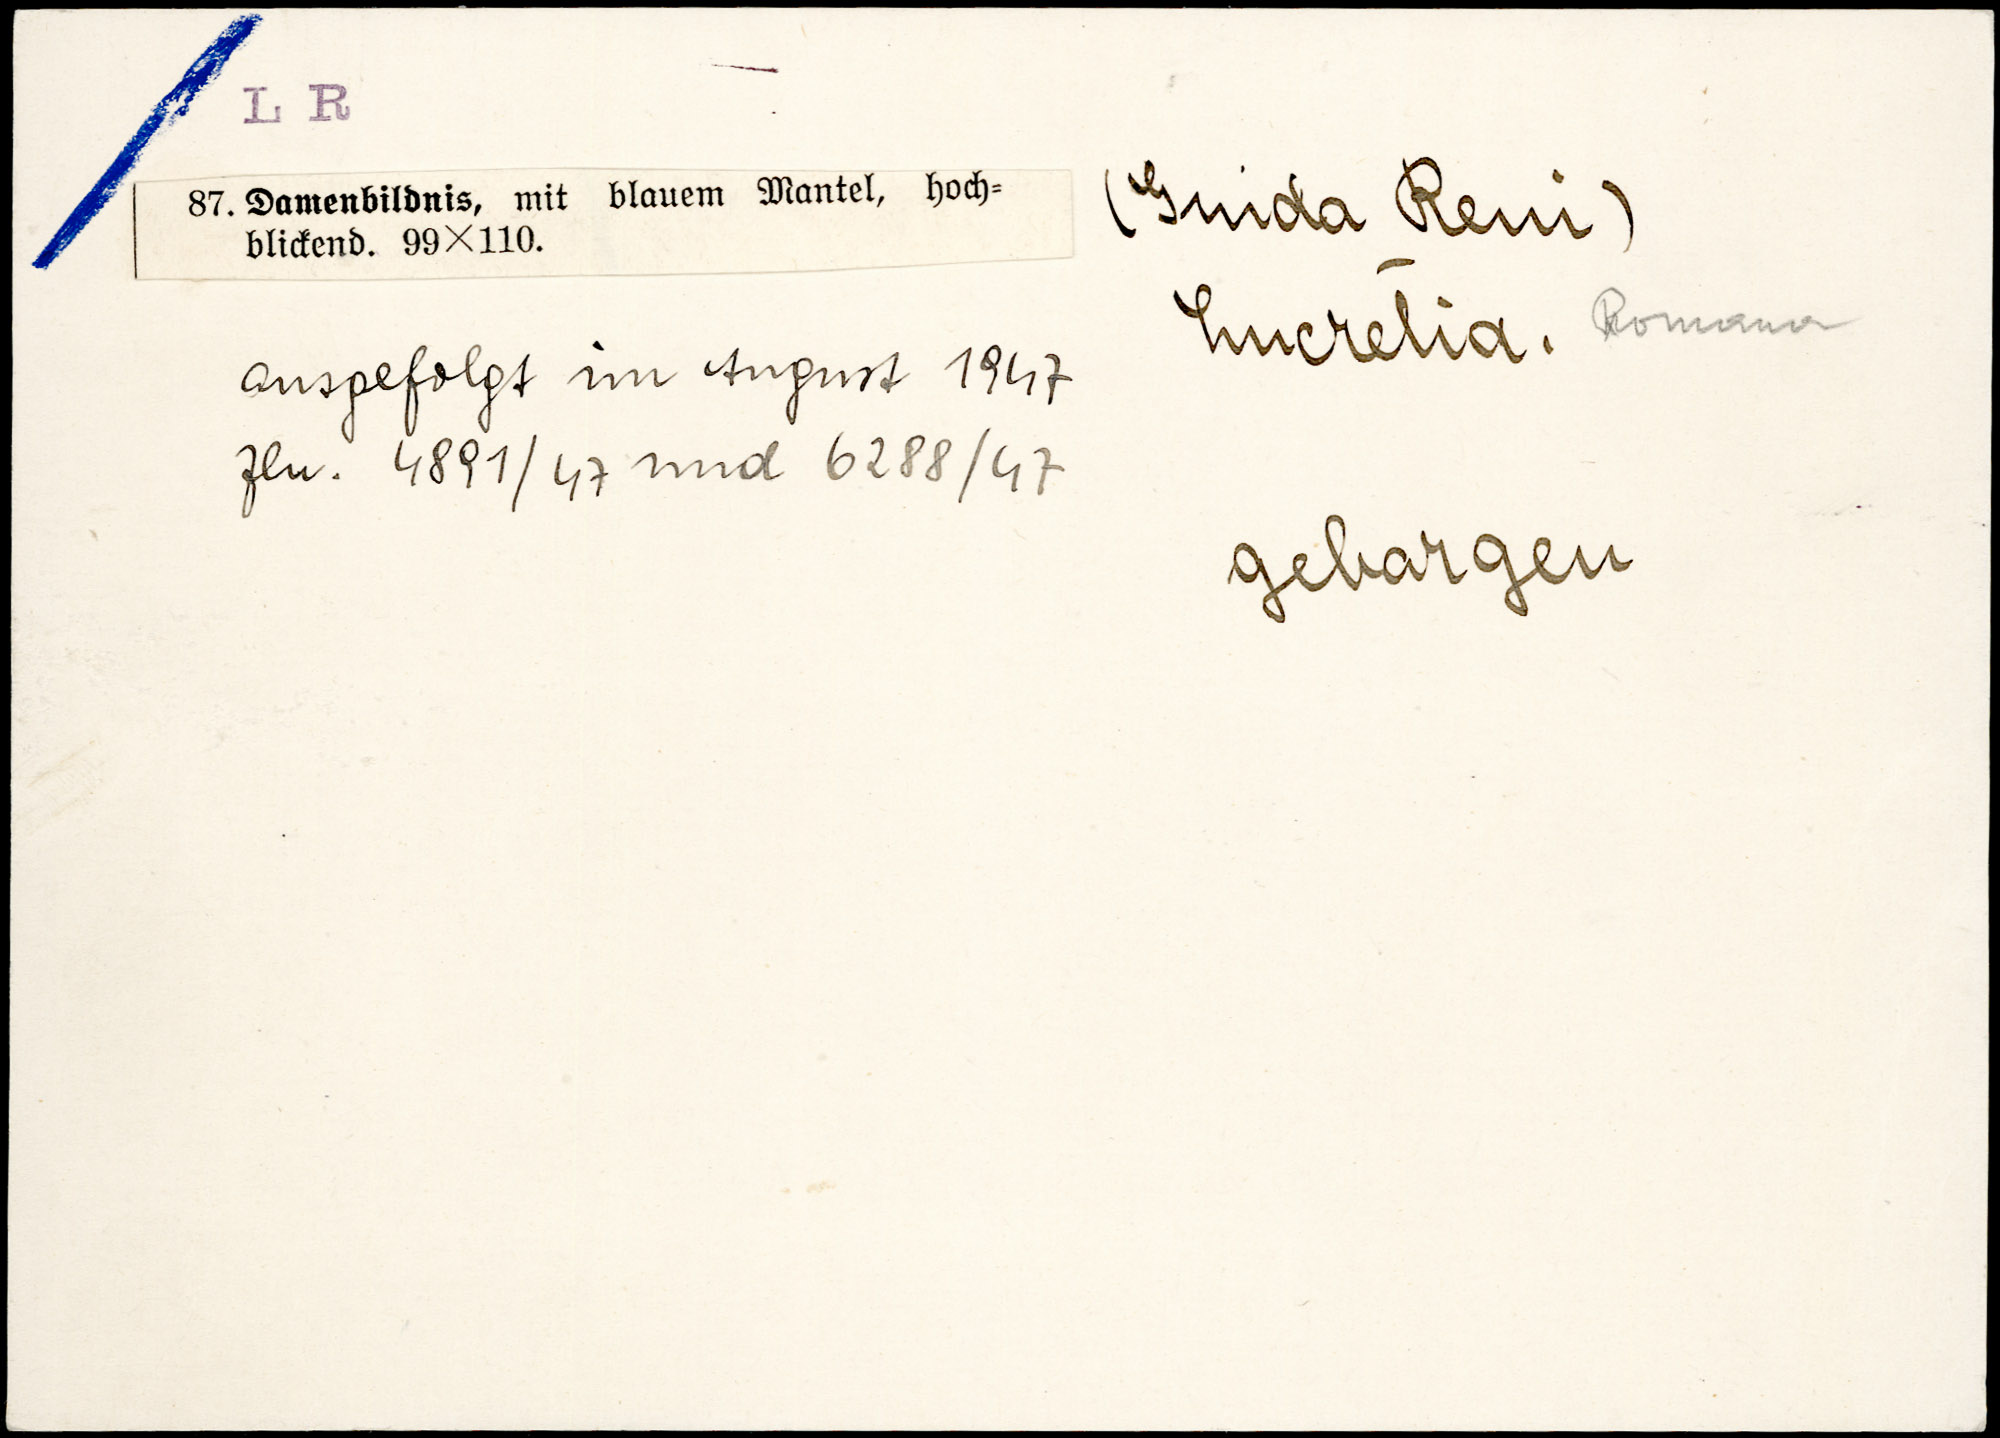 L R
87. Damenbildnis, mit blauem Mantel, hoch-
blickend. 99×110.
(Guido Reni)
Lucretia. Romana
ausgefolgt im August 1947
Zln. 4891/47 und 6288/47
geborgen